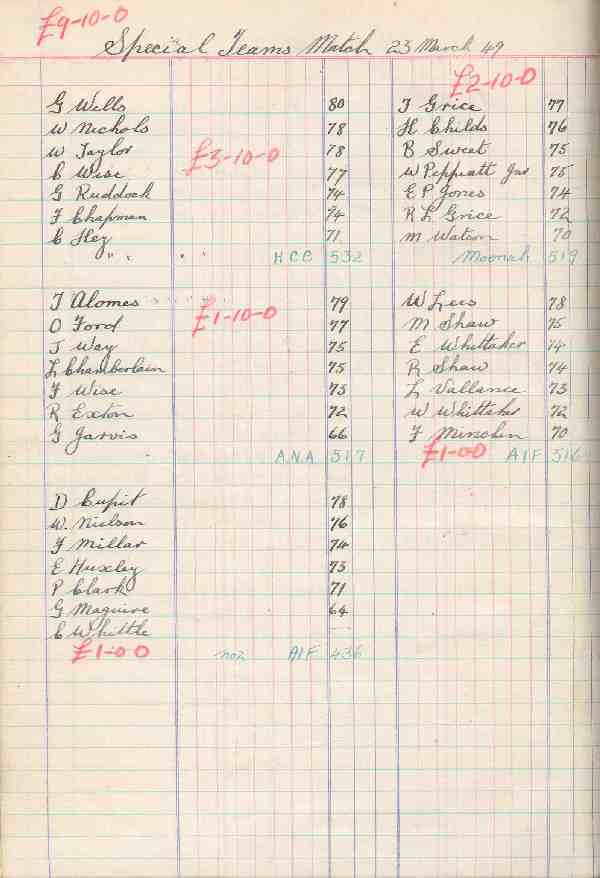 £9-10-0
Special Teams Match 23 March 49
G Wells 80
W Nichols 78
W Taylor 78
C Wise 77
£3-10-0
G Ruddock 74
F Chapman 74
C Hey 71
" " " "
H C C 532
£2-10-0
T Grice 77
H Childs 76
B Sweet 75
W Peppiatt Jnr 75
E P Jones 74
R L Grice 72
M Watson 70
Moonah 519
T Alomes 79
£1-10-0
O Ford 77
J Way 75
L Chamberlain 75
F Wise 73
R Exton 72
G Jarvis 66
A.N.A 517
W Lees 78
M Shaw 75
E Whittaker 74
R Shaw 74
L Vallance 73
W Whittaker 72
F Minchen 70
£1-0-0 AIF 516
D Cupit 78
W. Nielson 76
F Millar 74
E Huxley 73
P Clark 71
G Maguire 64
C Whittle
£1-0-0 no2 AIF 436